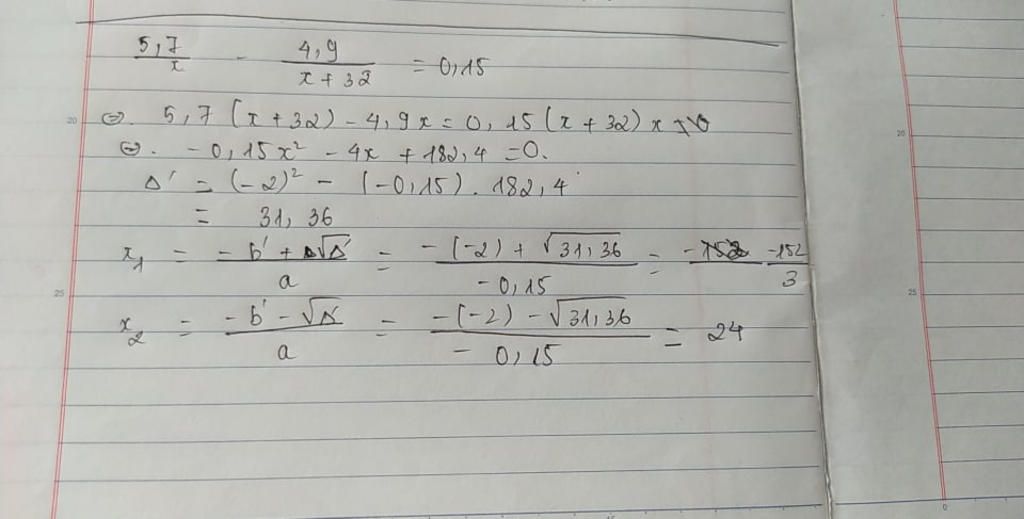 5,7/x - 4,9/(x+32) = 0,15
⇔. 5,7(x+32) - 4,9x = 0,15(x+32)x
⇔. -0,15x² - 4x + 182,4 = 0.
Δ' = (-2)² - (-0,15). 182,4
= 31,36
x₁ = (-b' + √Δ')/a = (-(-2) + √31,36)/(-0,15) = -152/3
x₂ = (-b' - √Δ')/a = (-(-2) - √31,36)/(-0,15) = 24
20
25
20
25
0